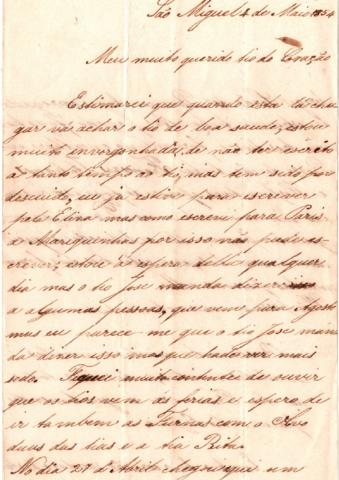 São Miguel 4 de Maio 1854
Meu muito querido tio do Coração
Estimarei que quando esta lá che
gar vá achar o tio de boa saude, estou
muito invergonhada, de não ter escrito
a tanto tempo ao tio, mas tem sido por
descuido, eu já estive para escrever
pelo mas como escrevi para Paris
a Mariquinhas por isso não pude es-
crever, estou á espera qualquer
dia mas o tio José manda dizer
a algumas pessoas, que vem para Agosto
mas eu parece me que o tio José man
da dizer isso mas que hade vir mais
sedo. Fiquei muito contente de ouvir
que os tios vem ás ferias e espero de
ir tambem ás Furnas com o Avo
duas das tias e a tia Rita.
No dia 27 d'Abril chegou aqui um